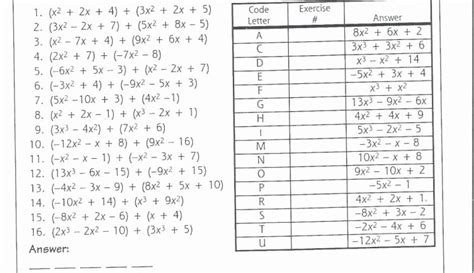 1. (x² + 2x + 4) + (3x² + 2x + 5)
2. (3x² - 2x + 7) + (5x² + 8x - 5)
3. (x² - 7x + 4) + (9x² + 6x + 4)
4. (2x² + 7) + (-7x² - 8)
5. (-6x² + 5x - 3) + (x² - 2x + 7)
6. (-3x² + 4) + (-9x² - 5x + 3)
7. (5x² - 10x + 3) + (4x² - 1)
8. (x² + 2x - 1) + (x³ - 2x + 1)
9. (3x³ - 4x²) + (7x² + 6)
10. (-12x² - x + 8) + (9x² - 16)
11. (-x² - x - 1) + (-x² - 3x + 7)
12. (13x³ - 6x - 15) + (-9x² + 9)
13. (-4x² - 3x - 9) + (8x² + 5x + 10)
14. (-10x² + 14) + (x³ + 9x²)
15. (-8x² + 2x - 6) + (x + 4)
16. (2x³ - 2x² - 10) + (3x³ + 5)
Answer:
Code Letter Exercise # Answer
A 8x² + 6x + 2
C 3x³ + 3x² + 6
D x³ - x² + 14
E -5x² + 3x + 4
F x³ + x²
G 13x³ - 9x² - 6x
H 4x² + 4x + 9
I 5x³ - 2x² - 5
M -3x² - x - 8
N 10x² - x + 8
O 9x² - 10x + 2
P -5x² - 1
R 4x² + 2x + 1.
S -8x² + 3x - 2
T -2x² - 4x + 6
U -12x² - 5x + 7